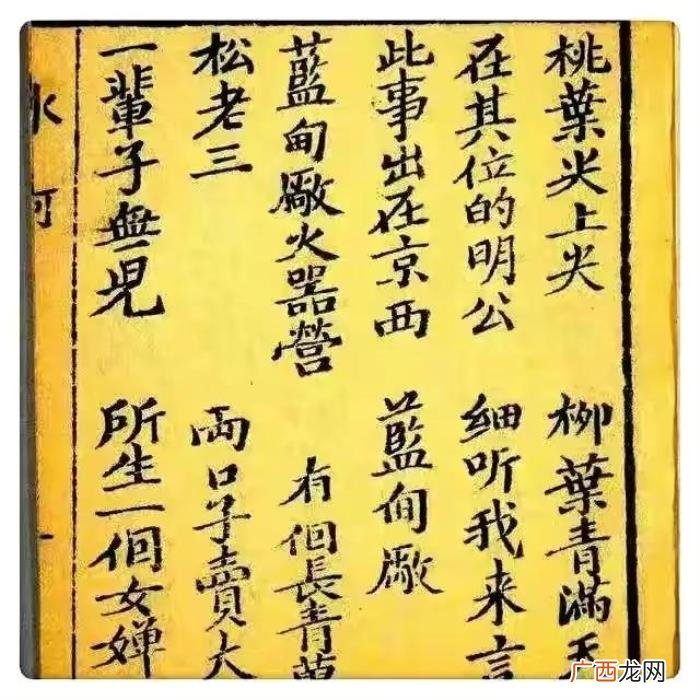 桃葉尖上尖 柳葉青滿天
在其位的明公 細听我来言
此事出在京西 藍甸廠
藍甸廠火器營 有佪長青
松老三 両口子賣大
一輩子無児 所生一佪女嬋
广西龙网